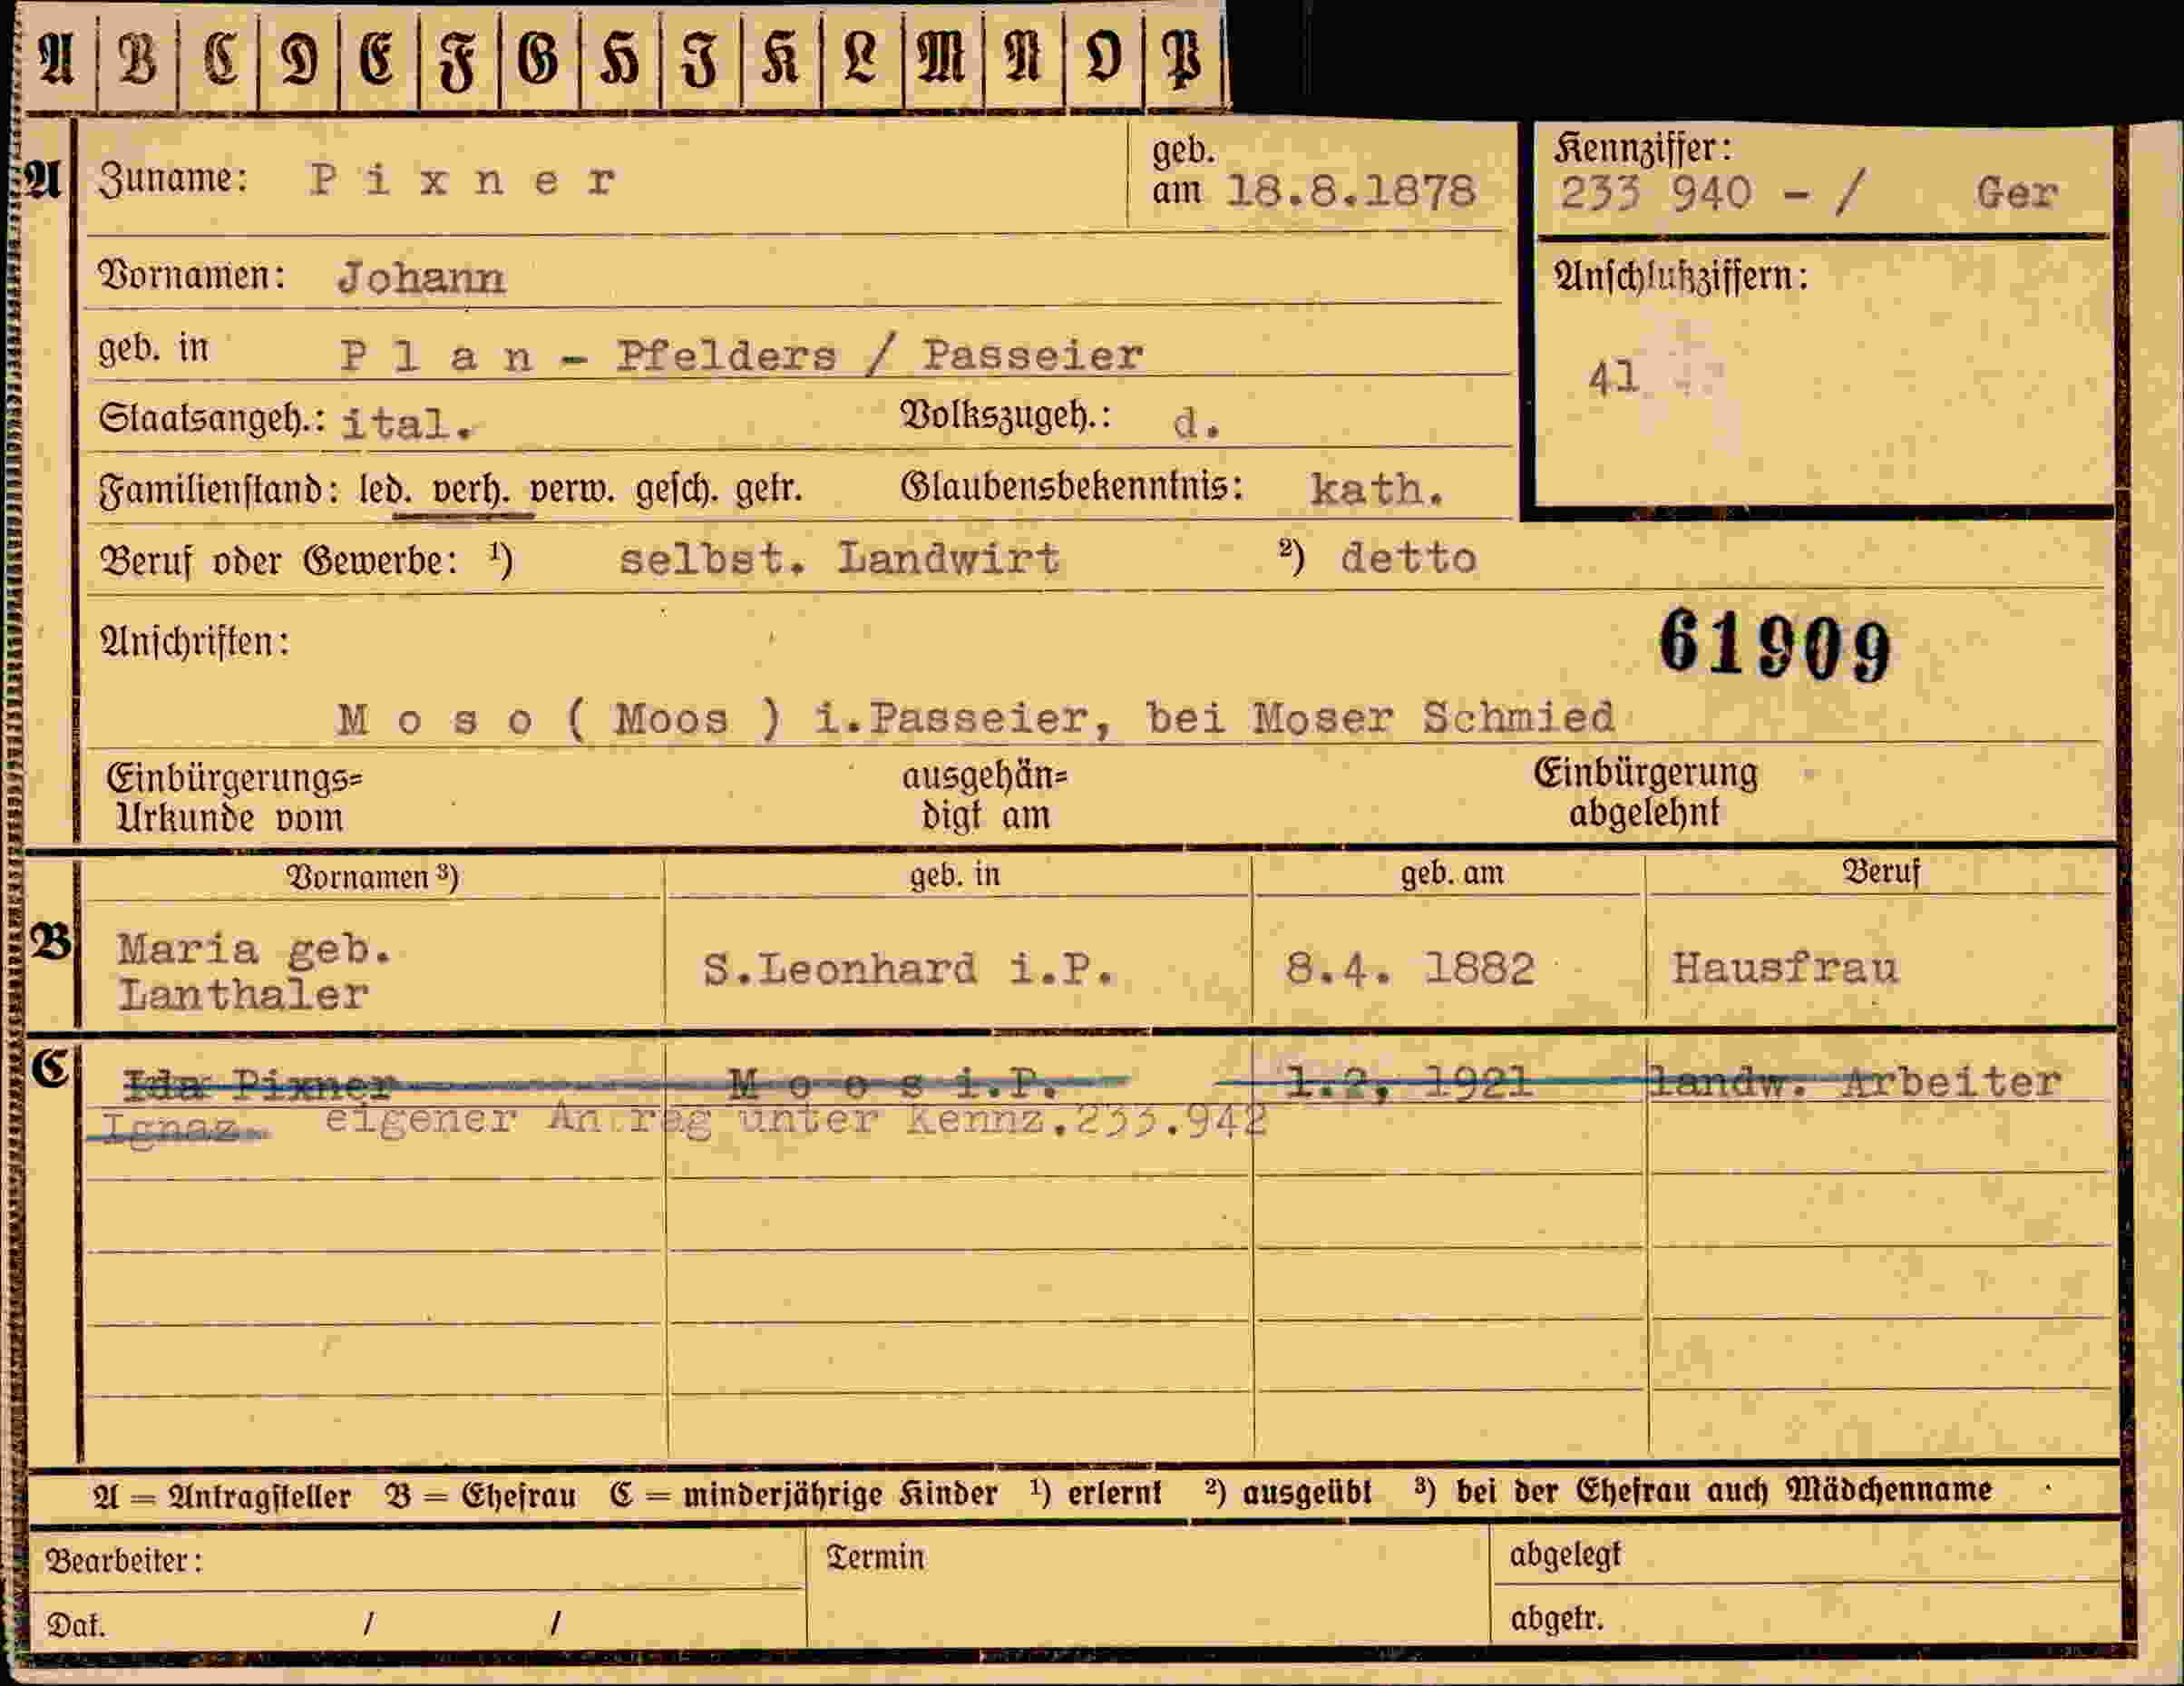 A B C D E F G H I K L M N O P
A Zuname: Pixner geb. am 18.8.1878 Kennziffer: 233 940 - / Ger
Vornamen: Johann Anschlußziffern:
geb. in Plan - Pfelders / Passeier 41
Staatsangeh.: ital. Volkszugeh.: d.
Familienstand: led. verh. verw. gesch. getr. Glaubensbekenntnis: kath.
Beruf oder Gewerbe: ¹) selbst. Landwirt ²) detto
Anschriften: 61909
Moso ( Moos ) i.Passeier, bei Moser Schmied
Einbürgerungs= ausgehän= Einbürgerung
Urkunde vom digt am abgelehnt
Vornamen ³) geb. in geb. am Beruf
B Maria geb.
Lanthaler S.Leonhard i.P. 8.4. 1882 Hausfrau
C Ida Pixner Moos i.P. 1.2, 1921 landw. Arbeiter
Ignaz eigener Antrag unter Kennz.233.942
A = Antragsteller B = Ehefrau C = minderjährige Kinder ¹) erlernt ²) ausgeübt ³) bei der Ehefrau auch Mädchenname
Bearbeiter: Termin abgelegt
Dat. / / abgetr.